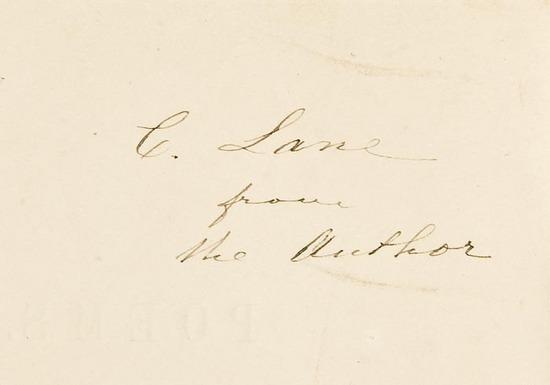 C. Lane
from
the Author
POEMS.